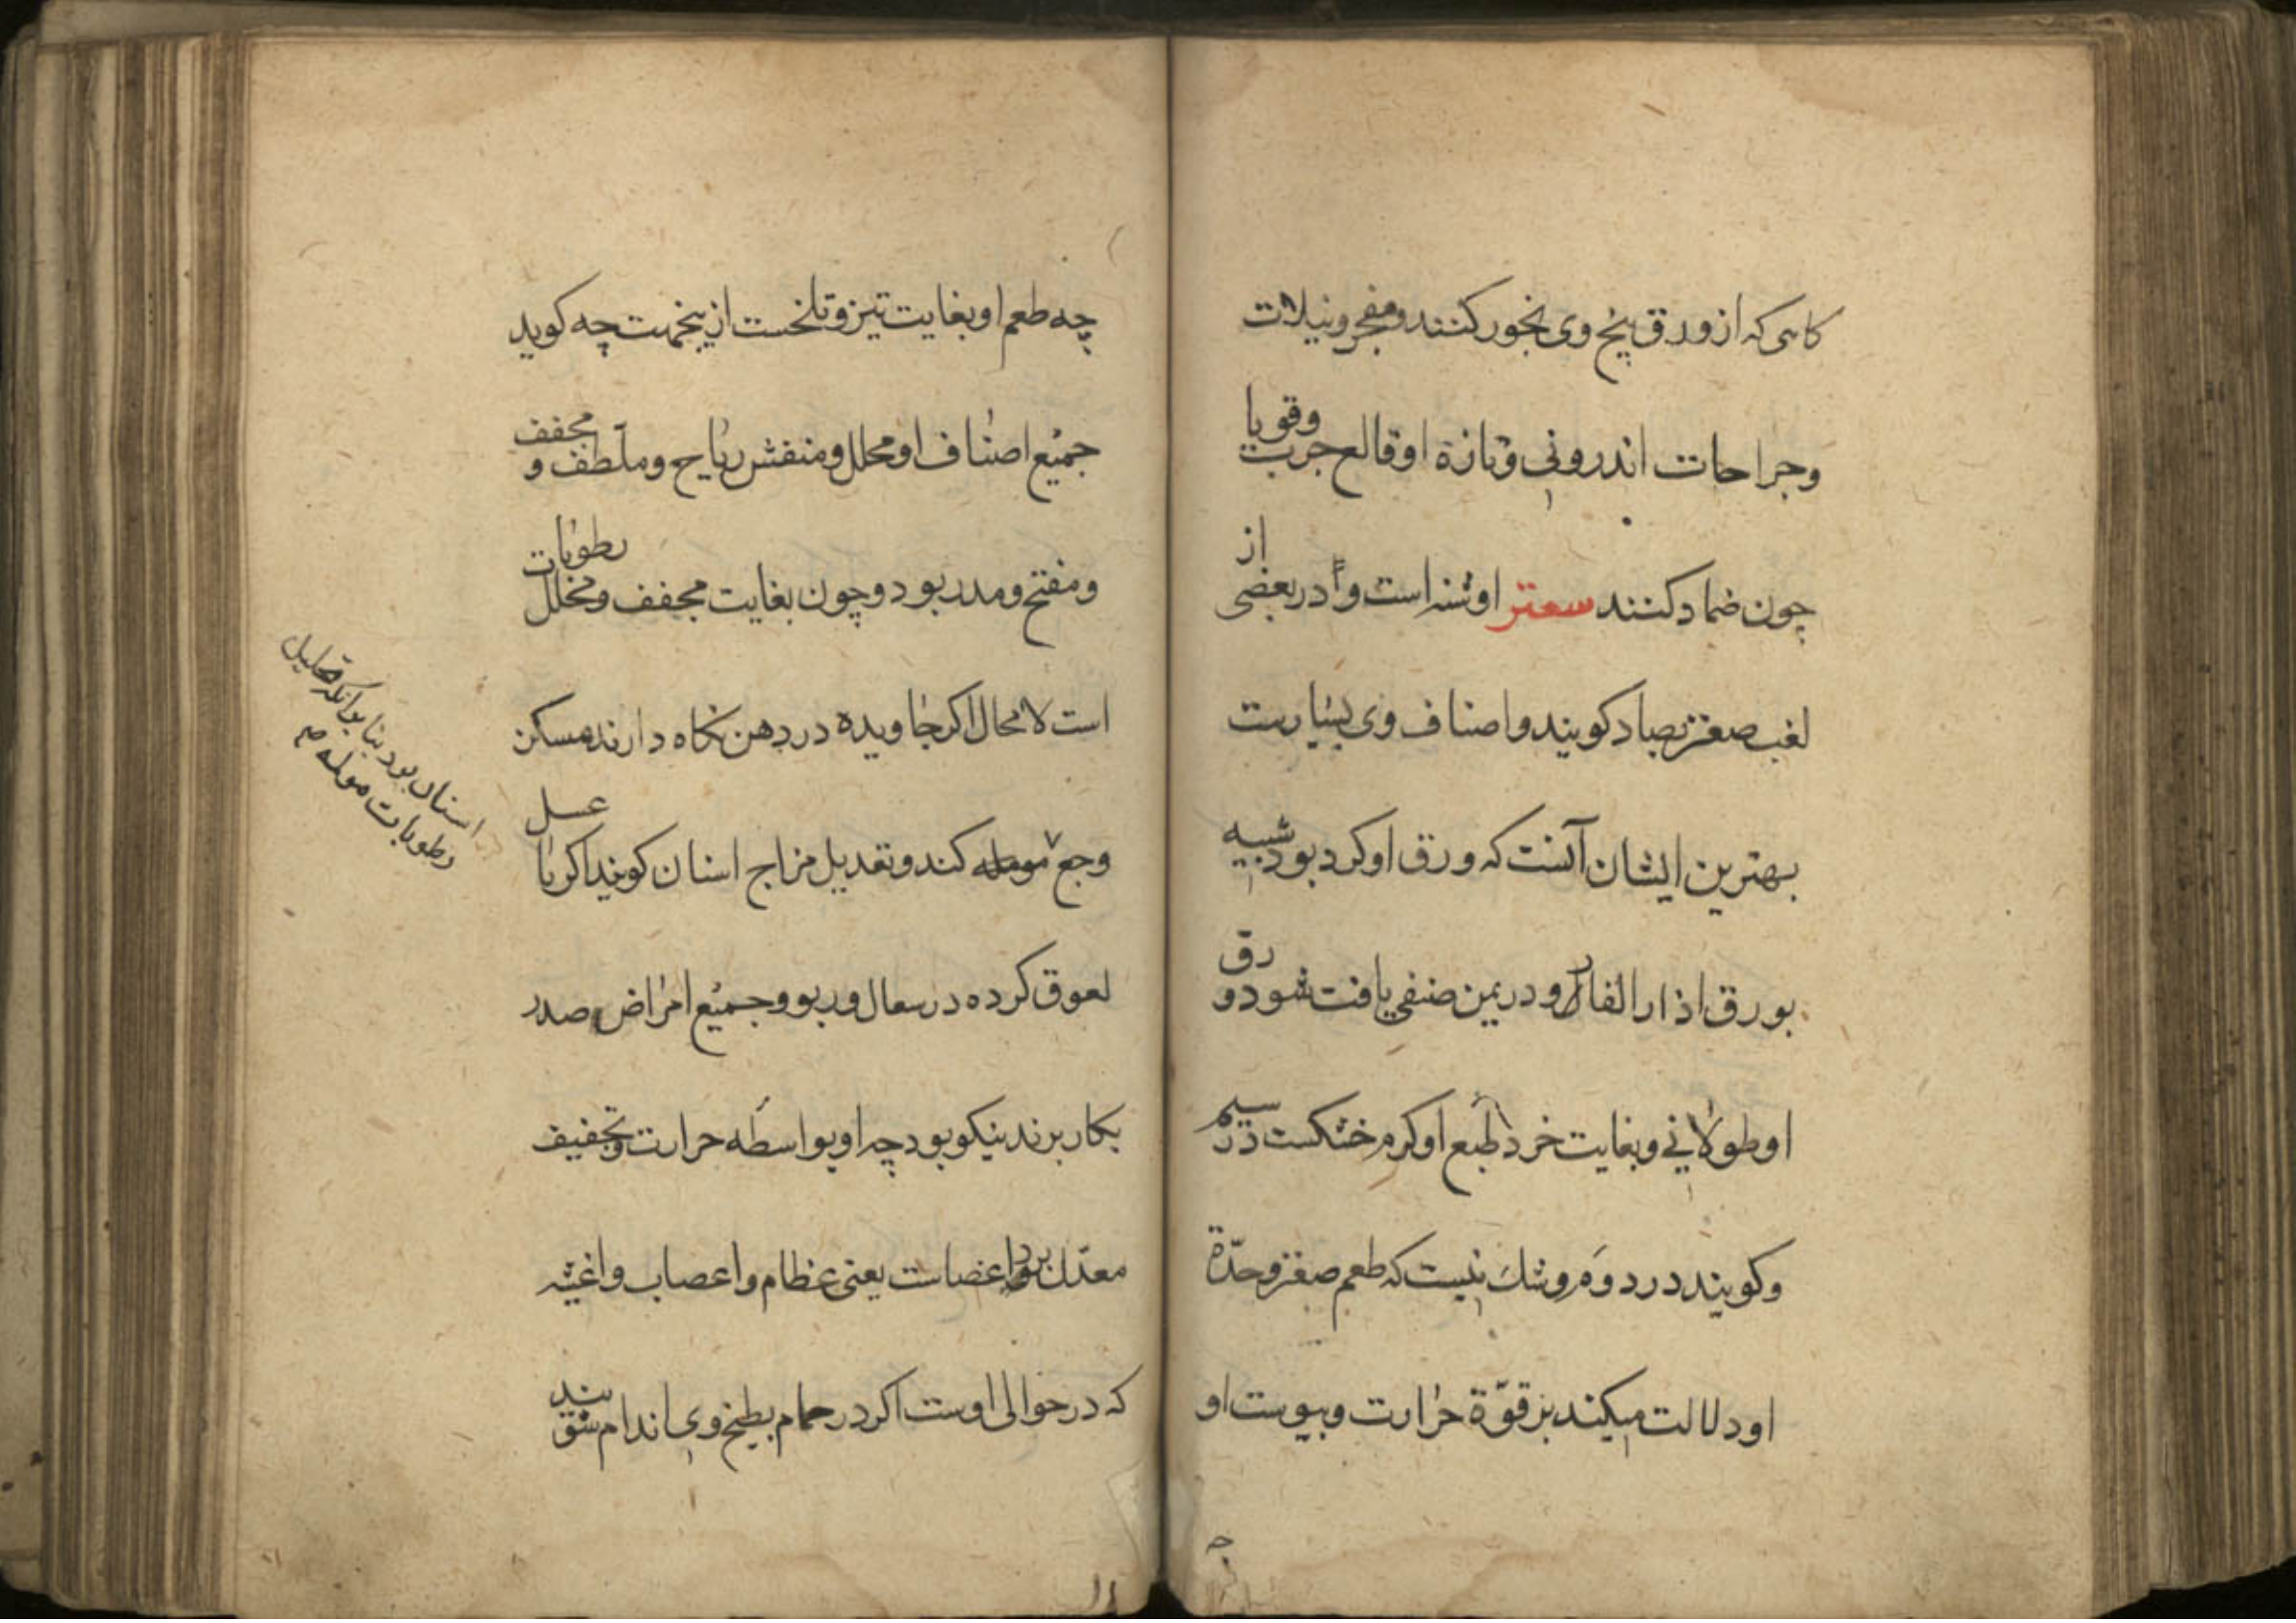 کاهی که از ورق بیخ وی بخور کنند و مفجر دنبلات
وجراحات اندرونی و تازهٔ او قالع جرب وقوبا
چون ضماد کنند سعتر اوشه است و در بعضی از
لغب صغتر بصاد کویند و اصناف وی بسیارست
بهترین ایشان آنست که ورق او کرد بود شبیه
بورق اذار الفار و در یمن صنفی یافت شود و رق
او طولانی و بغایت خرد طبع او کرم خشکست در سیم
و کویند در دوم و شک نیست که طعم صغتر و حدّة
او دلالت میکند بر قوّة حرارت و یبوست او
چه
چه طعم او بغایت تیز و تلخست ازینجهت چه کوید
جمیع اصناف او محلل و منفش ریاح و ملطف و مجفف
و مفتح و مدر بود و چون بغایت مجفف و محلل رطوبات
است لا محال اکر جاویده در دهن نکاه دارند مسکن
وجع کند و تعدیل مزاج اسنان کویند اکر با عسل
لعوق کرده در سعال و ربو و جمیع امراض صدر
بکار برند نیکو بود چه او بواسطه حرارت و تجفیف
معدّل برد اعضاست یعنی عظام و اعصاب و اغشیه
که در حوالی اوست اکر در حمام بطبیخ وی اندام شویند
اسنان بود بنا بر آنکه تحلیل
رطوبات مولمه